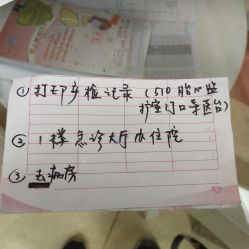 ①打印产检记录(510胎心监
护室门口导医台)
②1楼急诊大厅办住院
③去病房